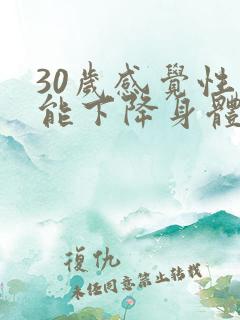 30歲感覺性
能下降身體
復仇
未經同意禁止轉載